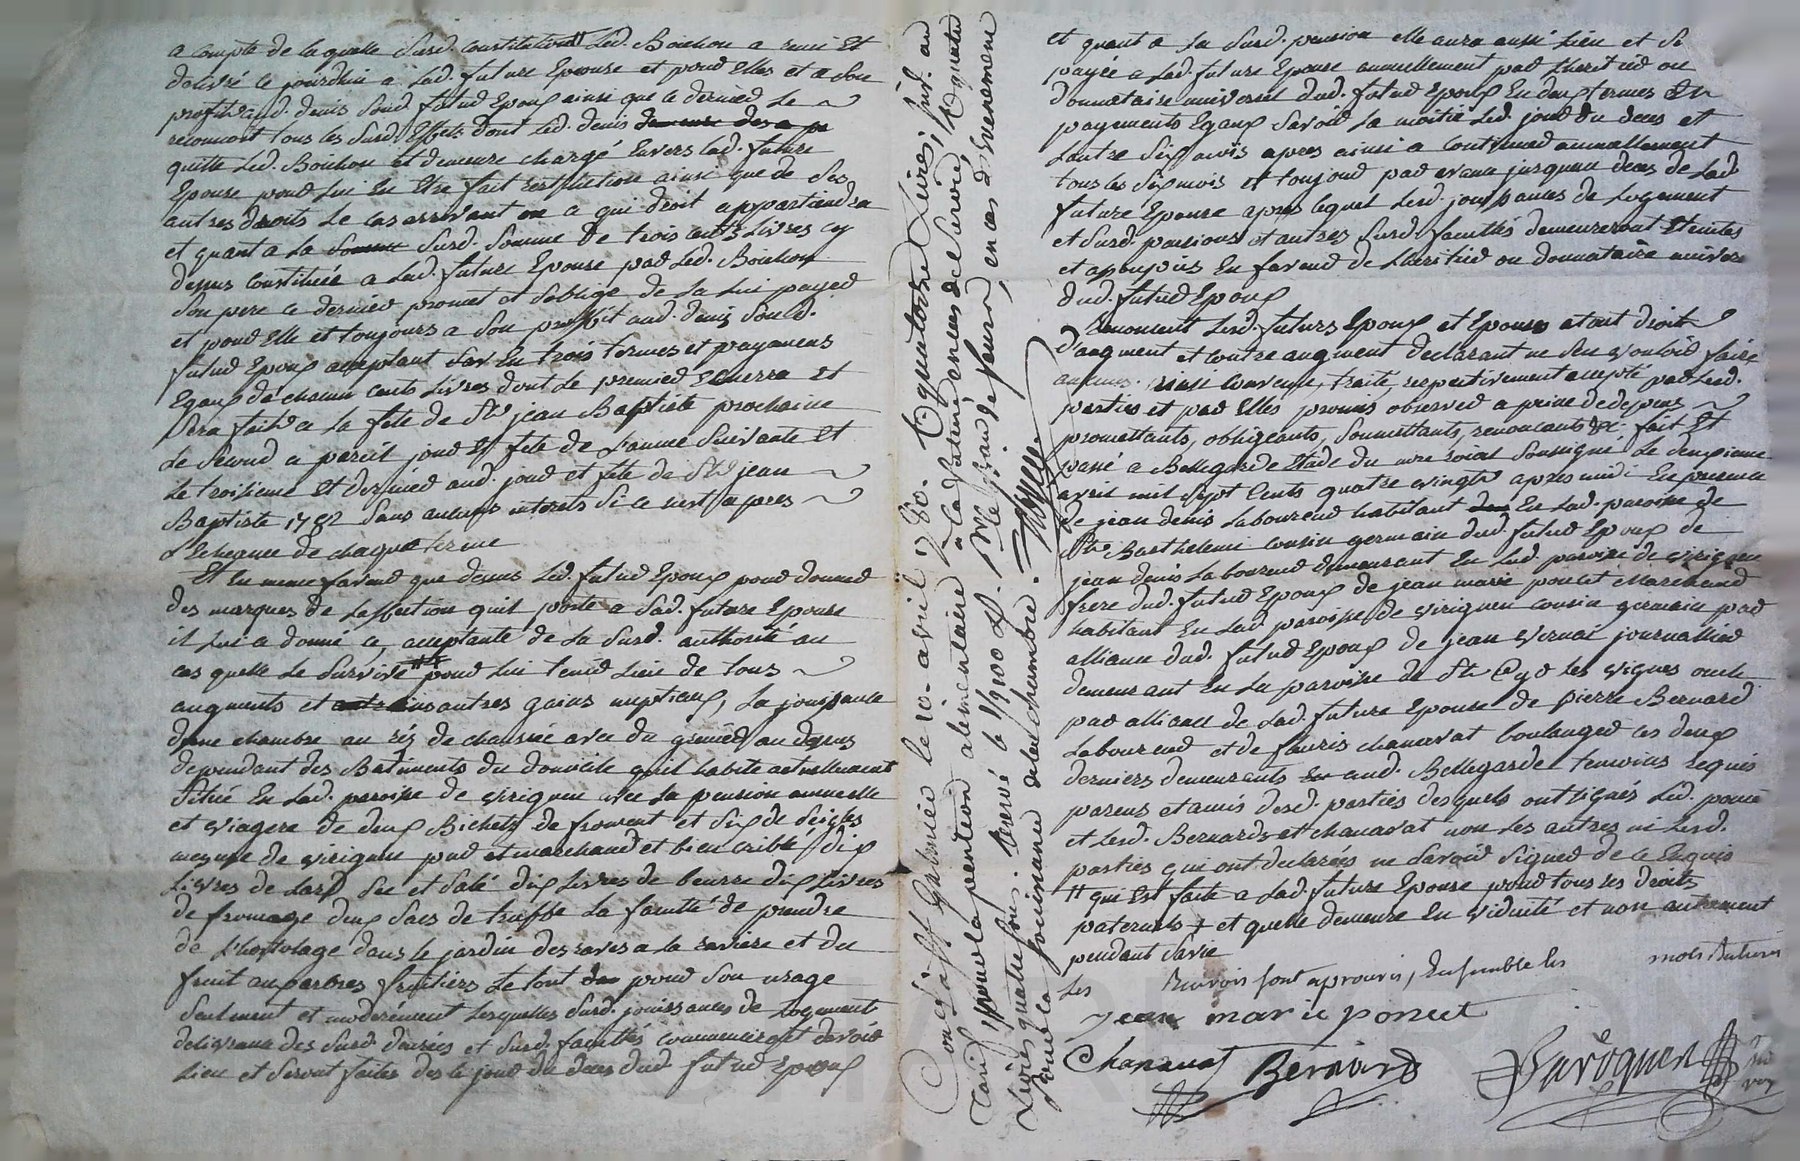 a compte de laquelle surd. constitution led. Boichon a remi et
delivré ce jourdhui a lad. future Epouse et pour Elles et a son
profit aud. denis sond. futur Epoux ainsi que ce dernier le
reconnoit tous les surd. Effets dont led. denis
quitte led. Boichon et demeure chargé Envers lad. future
Epouse pour lui En Etre fait restitution ainsi que de ses
autres droits le cas arrivant ou a qui droit appartiendra
et quant a la somme surd. somme de trois cents livres cy
dessus constituée a lad. future Epouse par led. Boichon
son pere ce dernier promet et soblige de la lui payer
et pour Elle et toujours a son proffit aud. denis sond.
futur Epoux acceptant sav. En trois termes et payemens
Egaux de chacun cents livres dont le premier Echerra et
sera fait a la fete de St jean Baptiste prochaine
le second a pareil jour et fete de l'année suivante et
le troisieme et dernier aud. jour et fete de St jean
Baptiste 1782 sans aucuns interets si ce nest apres
l'Echeance de chaque terme
Et En meme faveur que dessus led. futur Epoux pour donner
des marques de laffection quil porte a sad. future Epouse
il lui a donné ce, acceptante de la surd. authorité au
cas quelle le survive # pour lui tenir lieu de tous
augments et autres gains nuptiaux, la jouissance
dune chambre au réz de chaussée avec du grenier au dessus
dependant des Batiments du domicile quil habite actuellement
situé En lad. paroisse de virigneu avec la pension annuelle
et viagere de deux Bichets de froment et six de seigles
mesure de virigneu pur et marchand et bien criblé dix
livres de lard sec et salé dix livres de beurre dix livres
de fromage deux sacs de truffe la faculté de prendre
de l'hortolage dans le jardin des raves a la raviere et du
fruit aux arbres fruitiers le tout pour son usage
seulement et moderément lesquelles surd. jouissances de logement
delivrance des surd. denrées et surd. facultés commenceront davoir
lieu et seront faites des le jour du deces dud. futur Epoux
Controllé Gabriée le 10 avril 1780. R quatorze livres, sur. au
Tarif, pour la pention alimentaire a la future en cas de survie, R quatre
livres quatre sous. reservé le 1900 #. Mr le grand de fourn, en cas d'Evenement
pour la jouissance de la chambre.
et quant a la surd. pension elle aura aussi lieu et se
payée a lad. future Epouse annuellement par lheritier ou
donnataire universel dud. futur Epoux En deux termes Et
payements Egaux savoir la moitié led. jour du deces et
lautre six mois apres ainsi a continuer annuellement
tous les six mois et toujour par avance jusquau deces de lad.
future Epouse apres lequel lesd. jouissances de logement
et surd. pensions et autres surd. facultés demeureront Eteintes
et assoupies En faveur de lheritier ou donnataire univers
dud. futur Epoux
Renoncent lesd. futurs Epoux et Epouse atout droit
d'augment et contre augment declarant ne sen vouloir faire
aucuns. ainsi convenu, traité, respectivement accepté par lesd.
parties et par Elles promis observer a peine de depens
promettants, obligeants, soumettants, renoncants &c. fait Et
passé a Bellegarde Etude du nore roial soussigné le deuxieme
avril mil sept cents quatre vingts apres midi En presence
de jean denis laboureur habitant En lad. paroisse de
St Barthelemi cousin germain dud. futur Epoux de
jean denis laboureur demeurant En lad. paroisse de virigneu
frere dud. futur Epoux de jean marie poncet Marchand
habitant En lad. paroisse de virigneu cousin germain par
alliance dud. futur Epoux de jean vernai journallier
demeurant En la paroisse de St Cyr les vignes oncle
par alliance de lad. future Epouse de pierre Bernard
laboureur et de fleuris chanavat boulanger ces deux
derniers demeurants aud. Bellegarde temoins requis
parens et amis desd. parties desquels ont signés led. poncet
et lesd. Bernard et chanavat non les autres ni lesd.
parties qui ont declarées ne savoir signer de ce Enquis
# qui Est faite a lad. future Epouse pour tous ses droits
paternels et quelle demeure En viduité et non autrement
pendant savie
Les Renvois sont aprouvés, Ensemble les mots Raturés
jean marie poncet
Chanavat Bernard